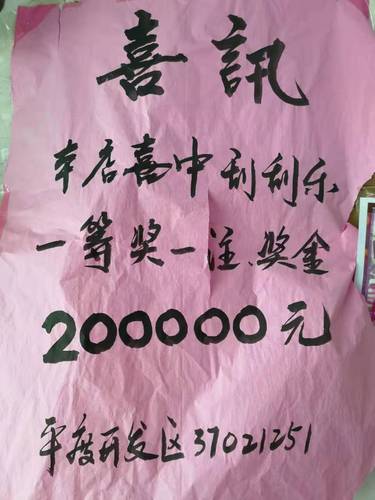 喜訊
本店喜中刮刮乐
一等奖一注、奖金
200000元
平度开发区37021251